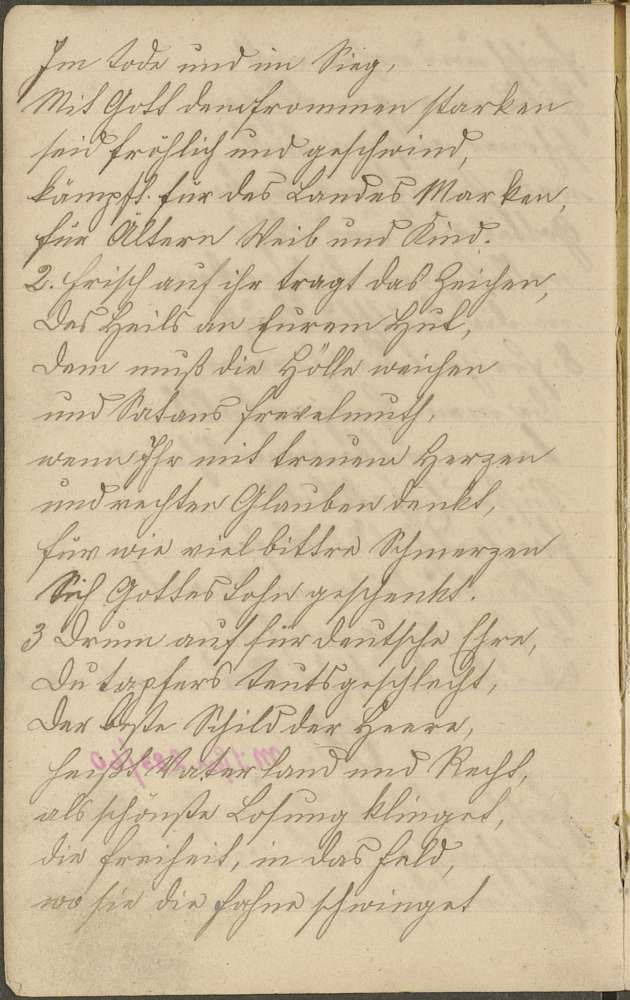 Im Tode und im Sieg,
Mit Gott dem frommen starken
seid fröhlich und geschwind,
kämpft für des Landes Marken,
für Ältern Weib und Kind.
2. Frisch auf ihr tragt das Zeichen,
Des Heils an Eurem Hut,
Dem muß die Hölle weichen
und Satans Frevelmuth,
wenn Ihr mit treuem Herzen
und rechten Glauben denkt,
für wie viel bittre Schmerzen
Sich Gottes Sohn geschenkt.
3 Drum auf für deutsche Ehre,
Du tapfers Teutsgeschlecht,
Der beste Schild der Heere,
heißt Vaterland und Recht,
als schönste Losung klinget,
die Freiheit, in das Feld,
wo sie die Fahne schwinget